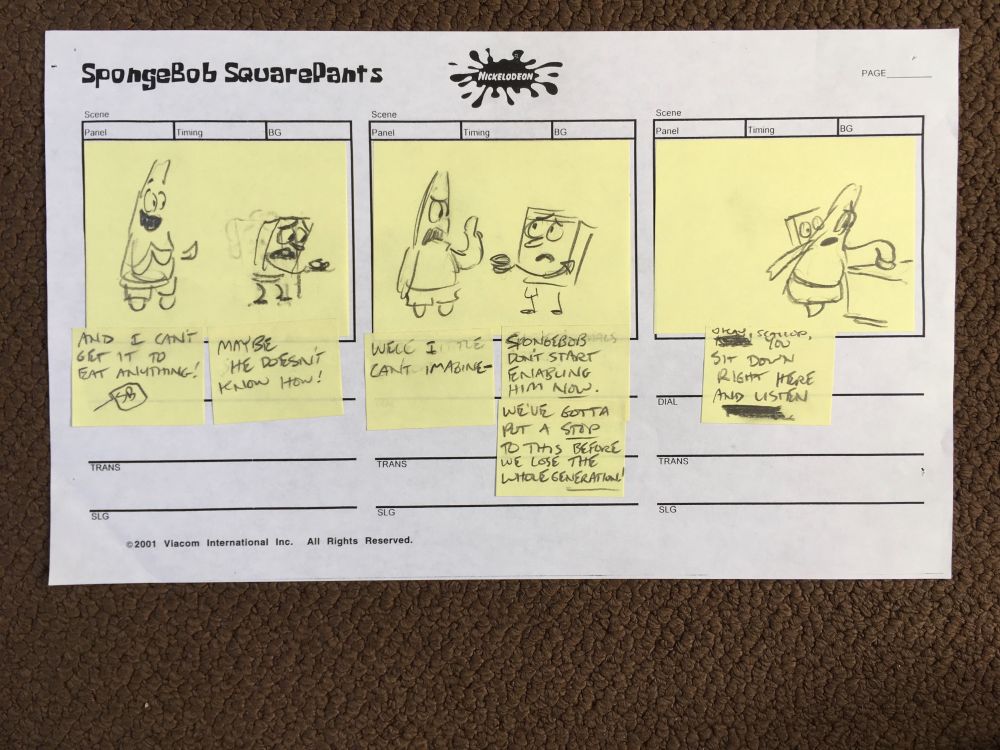 SpongeBob SquarePants
NICKELODEON
PAGE
Scene
Panel
Timing
BG
Scene
Panel
Timing
BG
Scene
Panel
Timing
BG
AND I CAN'T
GET IT TO
EAT ANYTHING!
SB
MAYBE
HE DOESN'T
KNOW HOW!
WELL I
CAN'T IMAGINE-
SPONGEBOB
DON'T START
ENABLING
HIM NOW.
WE'VE GOTTA
PUT A STOP
TO THIS BEFORE
WE LOSE THE
WHOLE GENERATION!
SCALLOP,
YOU
SIT DOWN
RIGHT HERE
AND LISTEN
DIAL
TRANS
SLG
TRANS
SLG
TRANS
SLG
©2001 Viacom International Inc. All Rights Reserved.